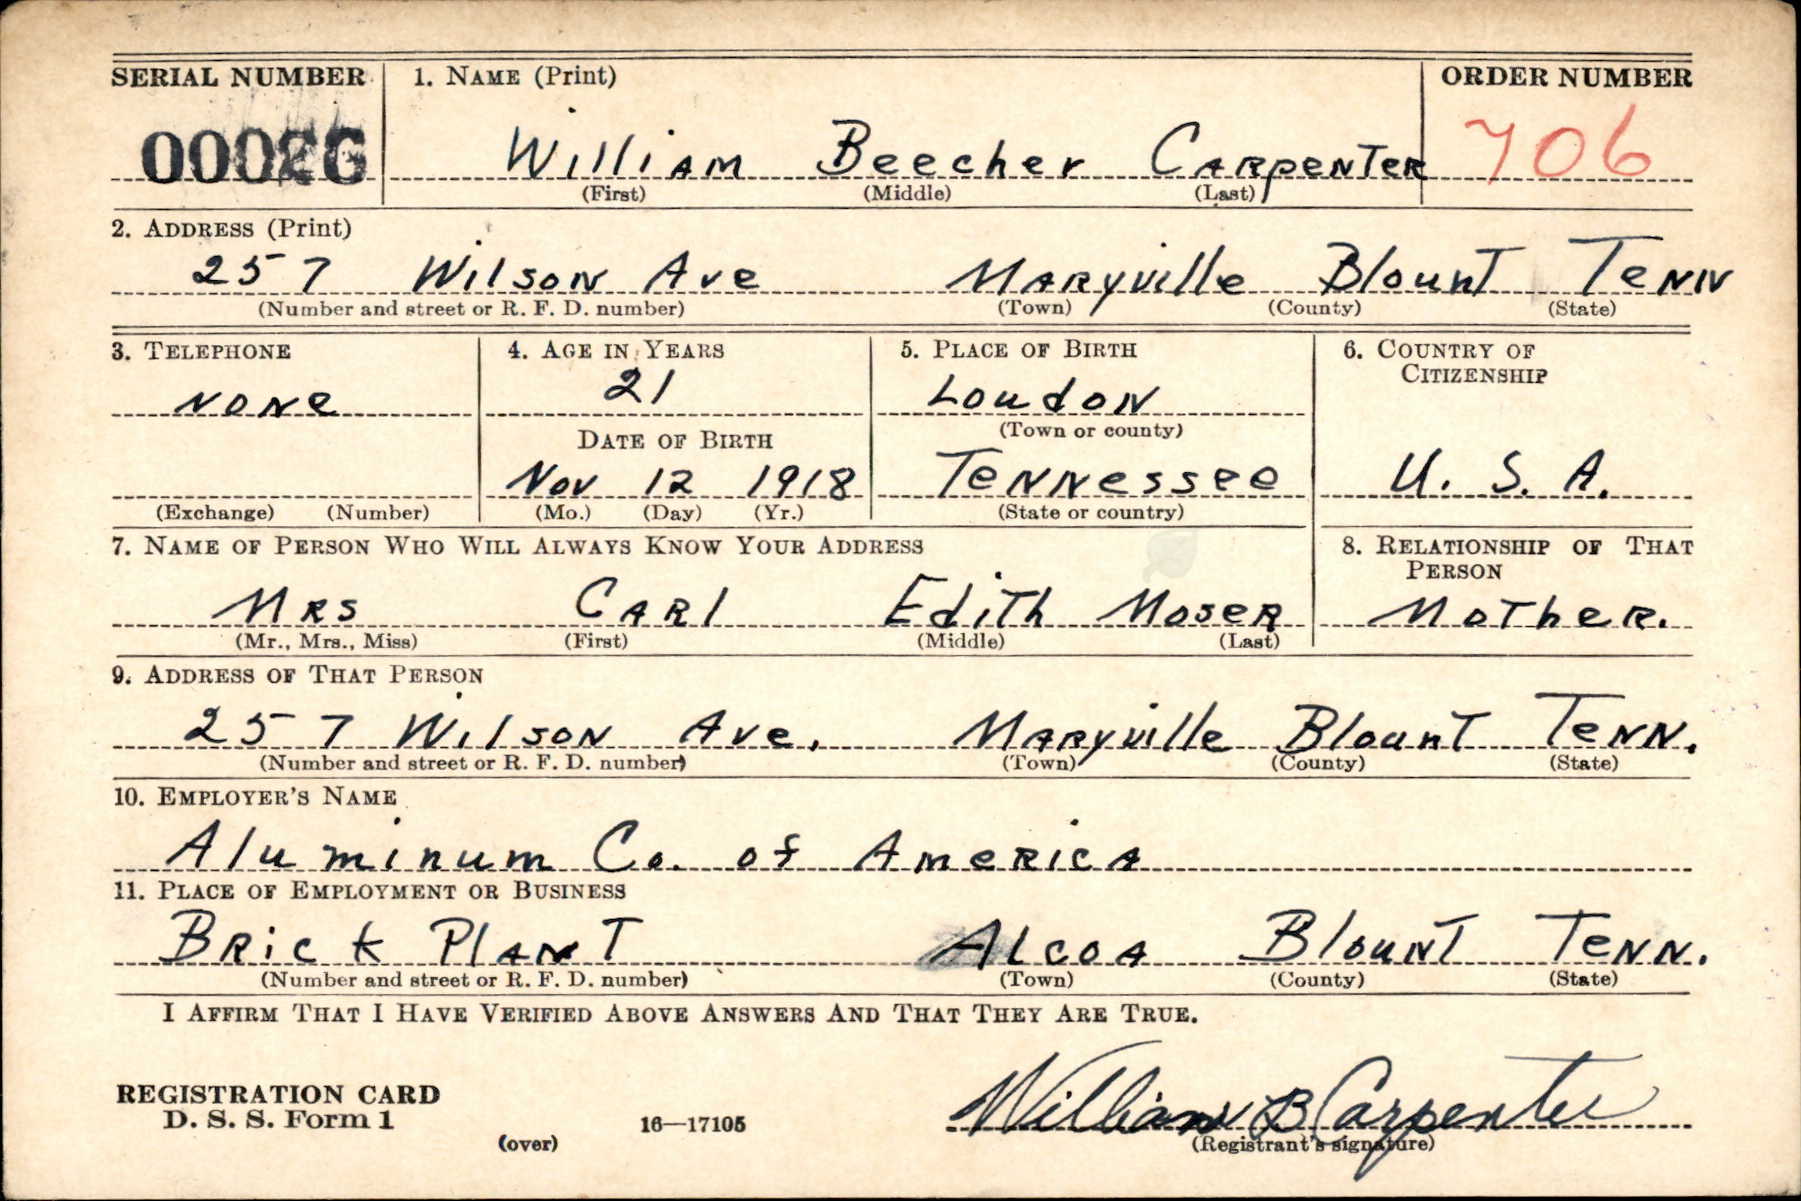 SERIAL NUMBER 1. NAME (Print) ORDER NUMBER
00026 William Beecher Carpenter 706
(First) (Middle) (Last)
2. ADDRESS (Print)
257 Wilson Ave Maryville Blount Tenn
(Number and street or R. F. D. number) (Town) (County) (State)
3. TELEPHONE 4. AGE IN YEARS 5. PLACE OF BIRTH 6. COUNTRY OF
CITIZENSHIP
None 21 Loudon
(Town or county)
DATE OF BIRTH
Nov 12 1918 Tennessee U. S. A.
(Exchange) (Number) (Mo.) (Day) (Yr.) (State or country)
7. NAME OF PERSON WHO WILL ALWAYS KNOW YOUR ADDRESS 8. RELATIONSHIP OF THAT
PERSON
Mrs Carl Edith Moser Mother.
(Mr., Mrs., Miss) (First) (Middle) (Last)
9. ADDRESS OF THAT PERSON
257 Wilson Ave, Maryville Blount Tenn.
(Number and street or R. F. D. number) (Town) (County) (State)
10. EMPLOYER'S NAME
Aluminum Co. of America
11. PLACE OF EMPLOYMENT OR BUSINESS
Brick Plant Alcoa Blount Tenn.
(Number and street or R. F. D. number) (Town) (County) (State)
I AFFIRM THAT I HAVE VERIFIED ABOVE ANSWERS AND THAT THEY ARE TRUE.
REGISTRATION CARD
D. S. S. Form 1 16—17105 William B Carpenter
(over) (Registrant's signature)